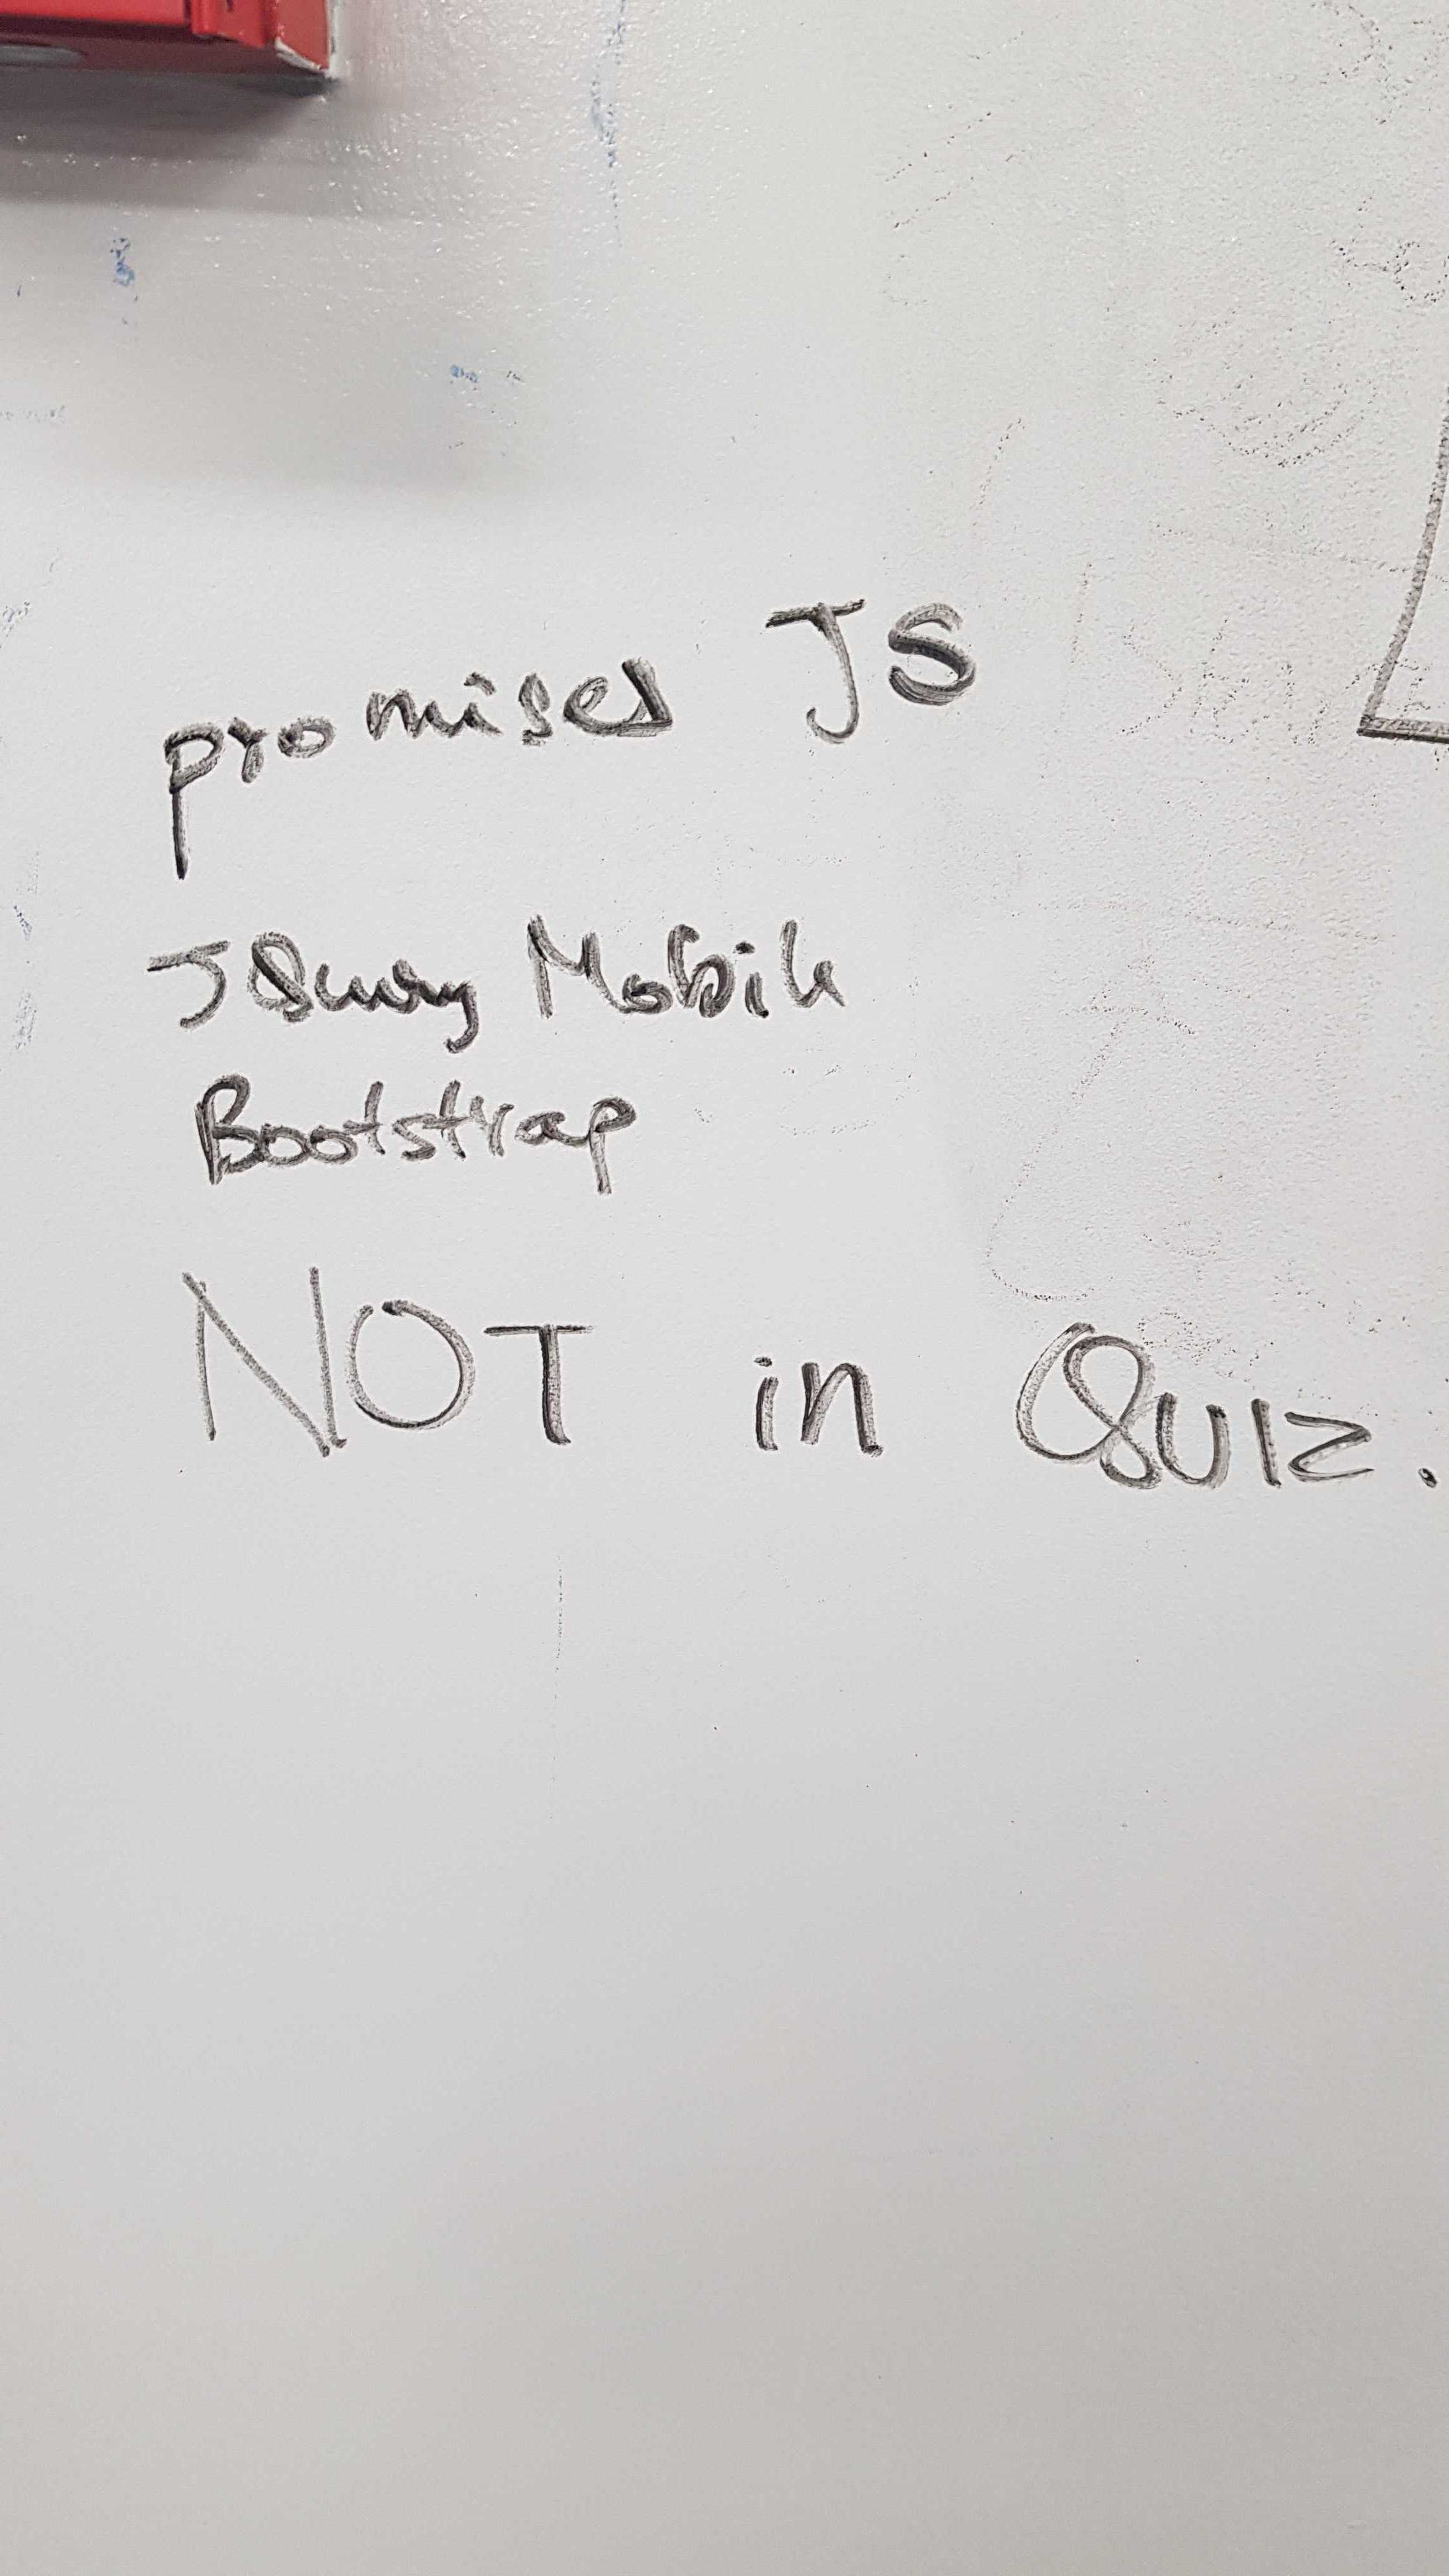 promises JS
JQuery Mobile
Bootstrap
NOT in QUIZ.